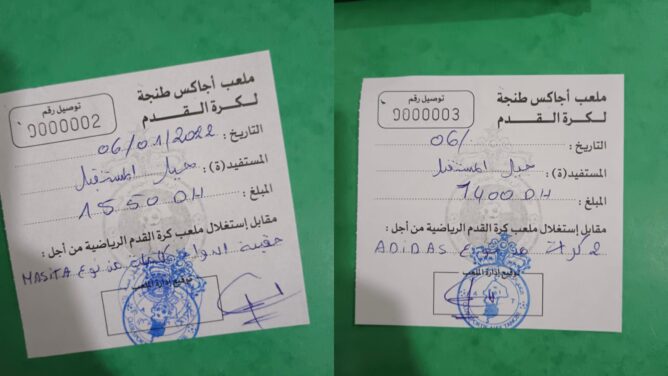 ملعب أجاكس طنجة
لكرة القدم
توصيل رقم
0000002
التاريخ : 06/01/2022
المستفيد(ة) : جيل المستقبل
المبلغ : 1550 DH
مقابل إستغلال ملعب كرة القدم الرياضية من أجل :
حقيبة الدواء من نوع MASITA
توقيع إدارة الملعب
ملعب أجاكس طنجة
لكرة القدم
توصيل رقم
0000003
التاريخ : 06/
المستفيد(ة) : جيل المستقبل
المبلغ : 1400 DH
مقابل إستغلال ملعب كرة القدم الرياضية من أجل :
2 كرات من نوع ADIDAS
توقيع إدارة الملعب